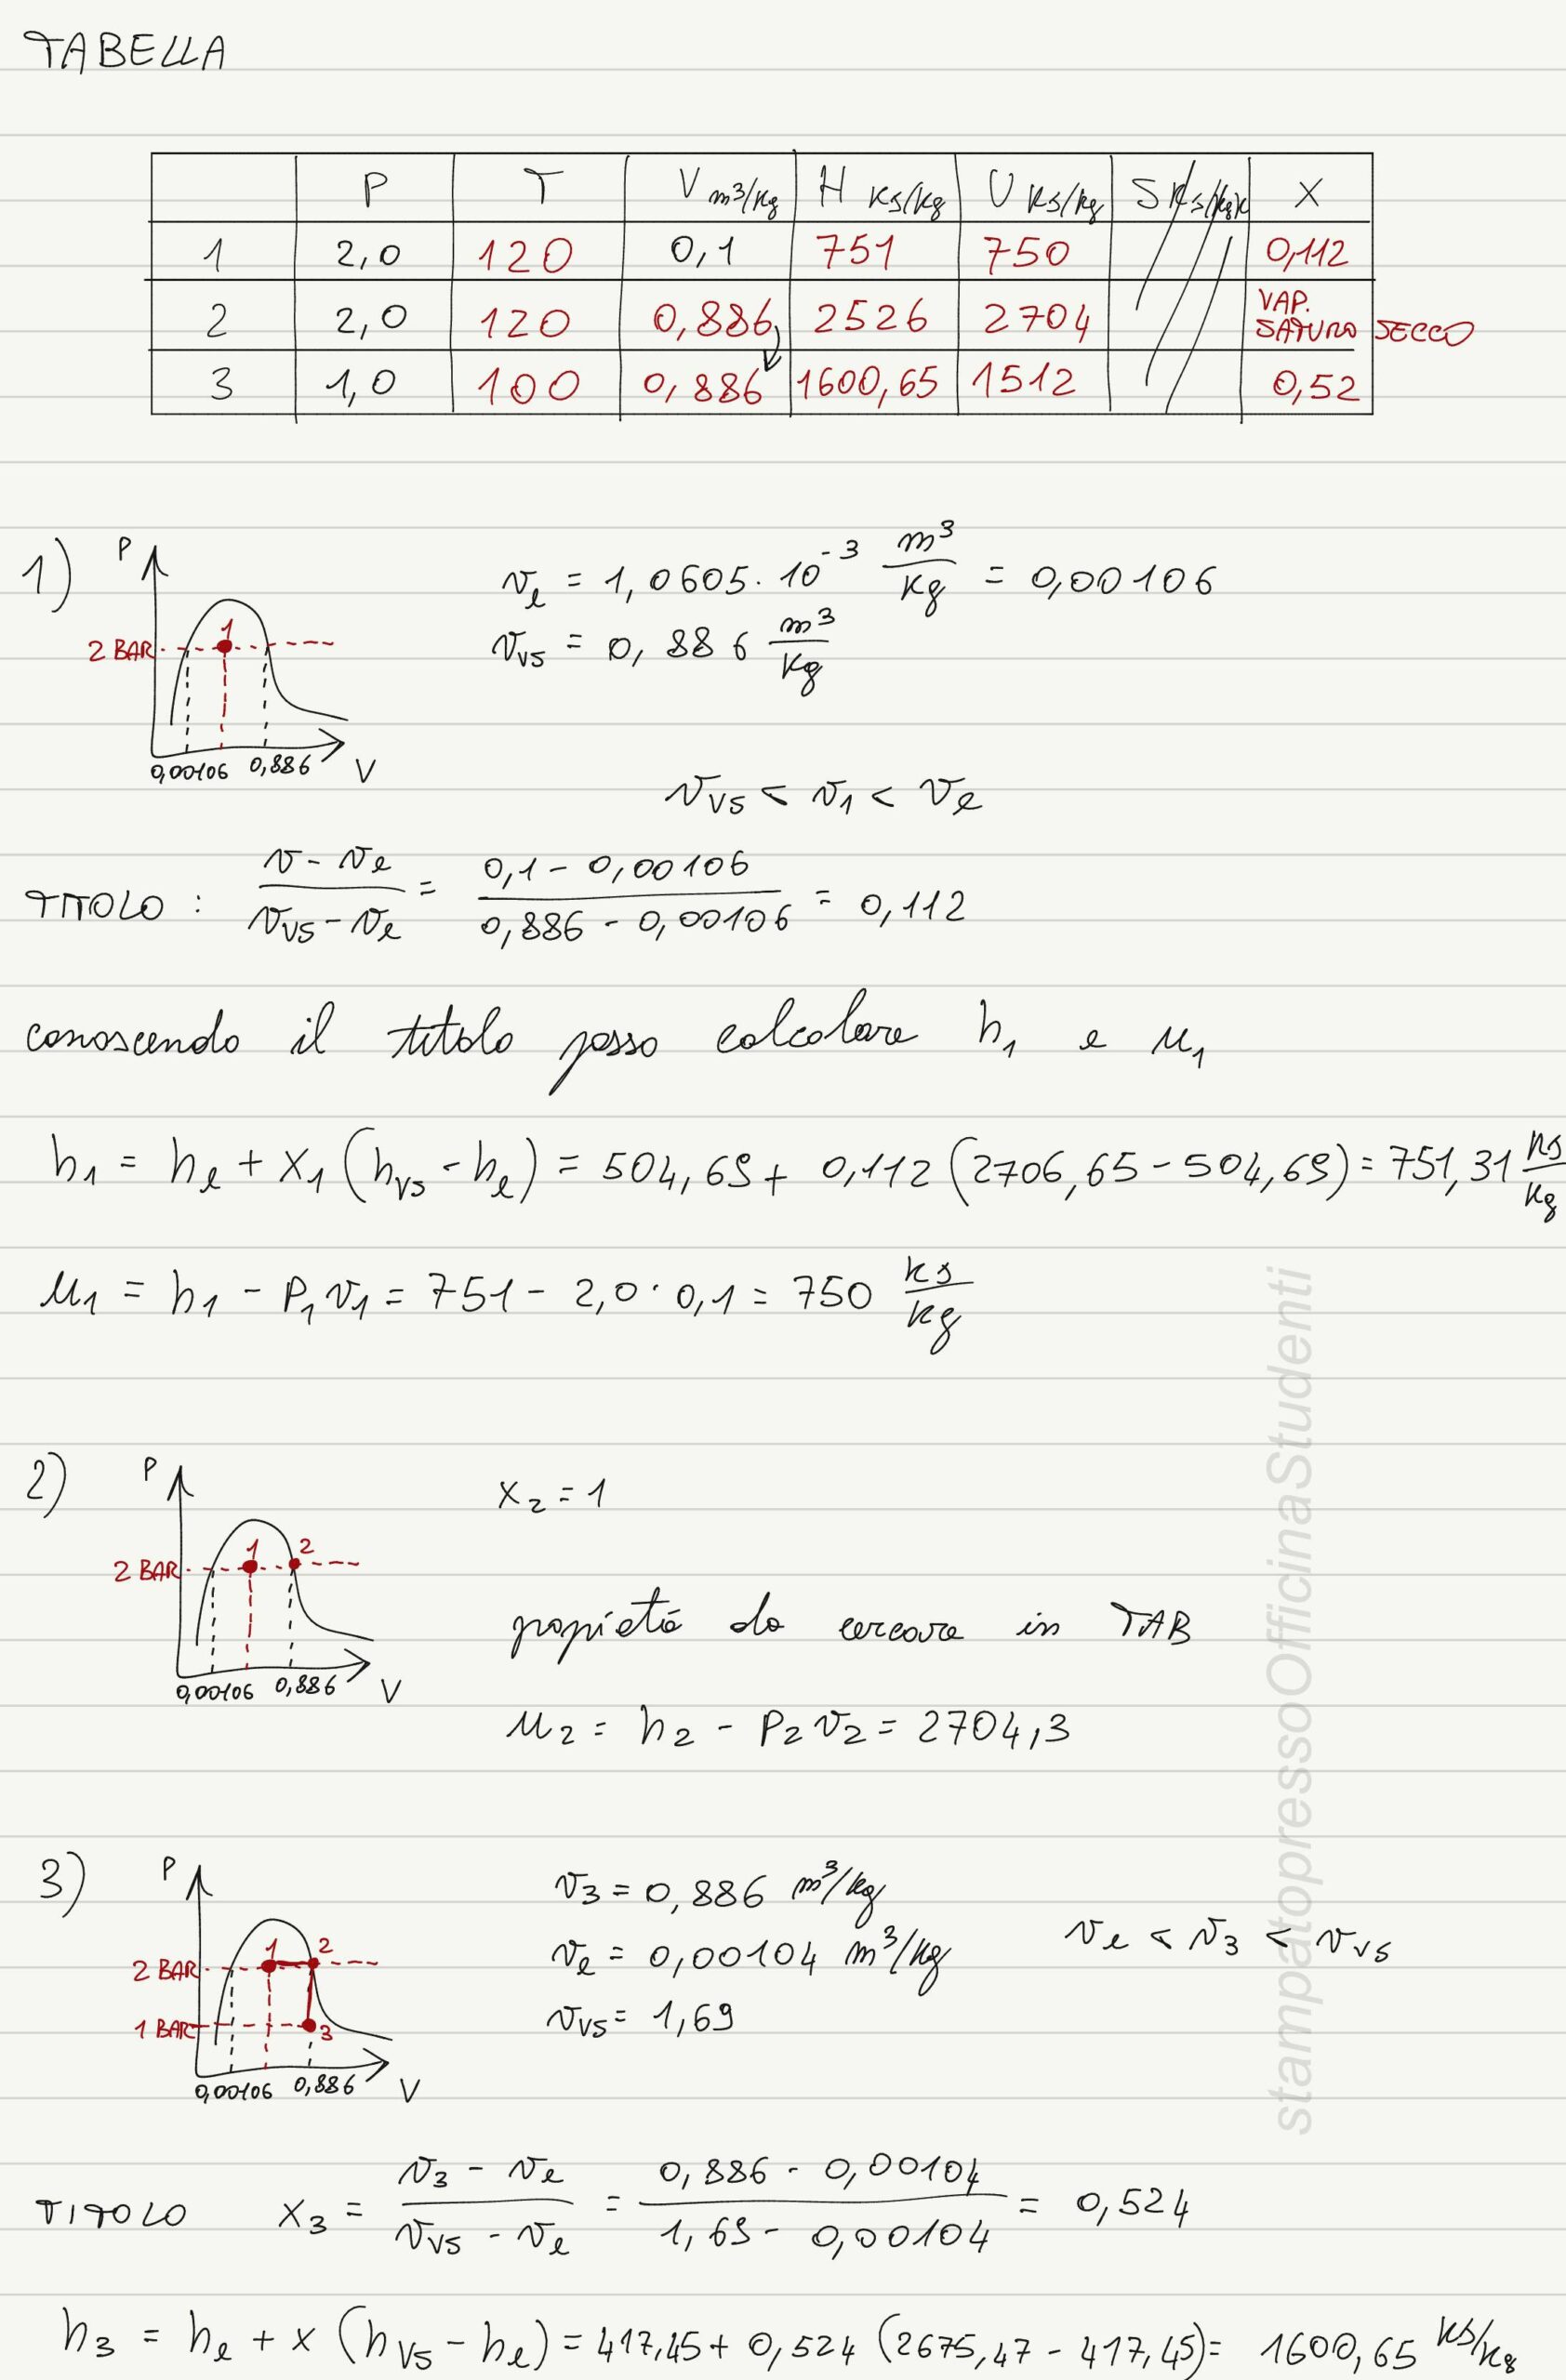 TABELLA
P T V m³/kg H KJ/kg U KJ/kg S KJ/kgK X
1 2,0 120 0,1 751 750 0,112
2 2,0 120 0,886 2526 2704 VAP. SATURO SECCO
3 1,0 100 0,886 1600,65 1512 0,52
1) P
2 BAR
1
0,00106 0,886 V
v_l = 1,0605 · 10⁻³ m³/kg = 0,00106
v_vs = 0,886 m³/kg
v_vs < v_1 < v_l
TITOLO : (v - v_l)/(v_vs - v_l) = (0,1 - 0,00106)/(0,886 - 0,00106) = 0,112
conoscendo il titolo posso calcolare h_1 e u_1
h_1 = h_l + x_1 (h_vs - h_l) = 504,69 + 0,112 (2706,65 - 504,69) = 751,31 KJ/kg
u_1 = h_1 - P_1 v_1 = 751 - 2,0 · 0,1 = 750 KJ/kg
2) P
2 BAR
1 2
0,00106 0,886 V
x_2 = 1
propietà da cercare in TAB
u_2 = h_2 - P_2 v_2 = 2704,3
3) P
2 BAR
1 2
1 BAR
3
0,00106 0,886 V
v_3 = 0,886 m³/kg
v_l = 0,00104 m³/kg
v_vs = 1,69
v_l < v_3 < v_vs
TITOLO x_3 = (v_3 - v_l)/(v_vs - v_l) = (0,886 - 0,00104)/(1,69 - 0,00104) = 0,524
h_3 = h_l + x (h_vs - h_l) = 417,45 + 0,524 (2675,47 - 417,45) = 1600,65 KJ/kg
stampatopressoOfficinaStudenti